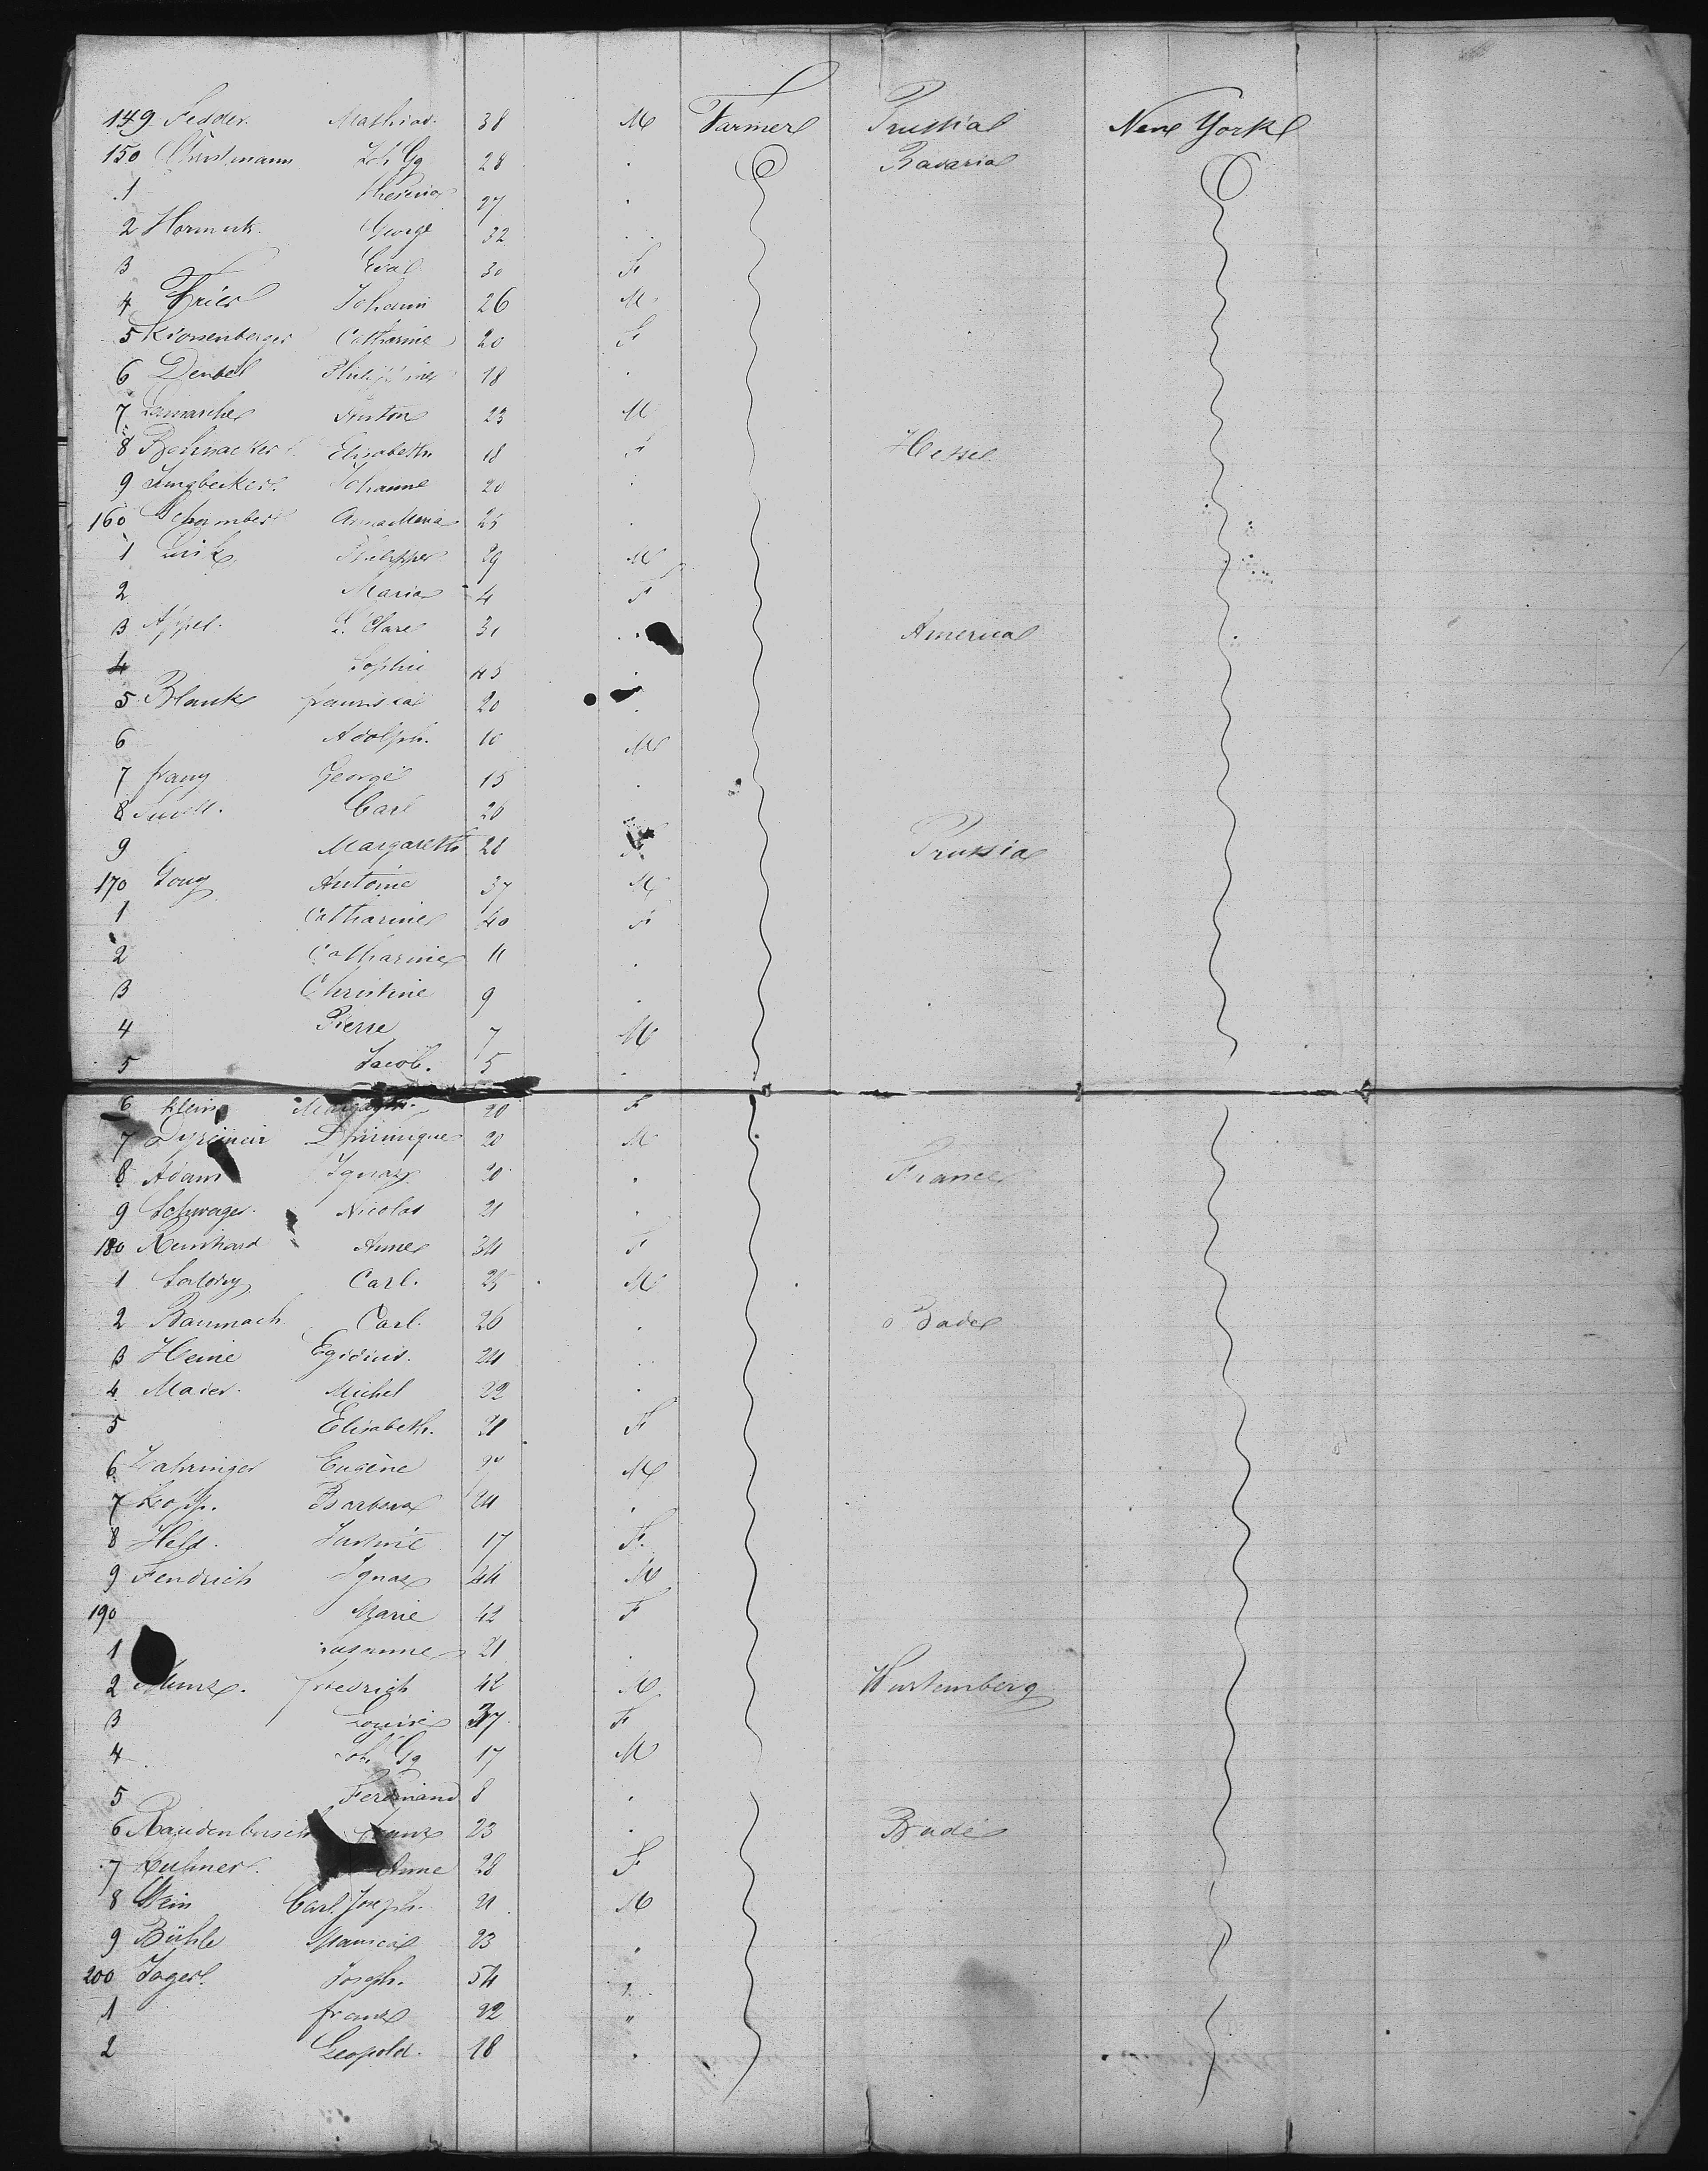 149 Fedder. Mathias. 38 M Farmer Prussia New York
150 Christmann Joh Gg 28 . Bavaria
1 Theresia 27 .
2 George 32 .
3 Eva 30 F
4 Fries Johann 26 M
5 Kronenberger Catharine 20 F
6 Dentel Philippine 18 .
7 Lamarche Anton 23 M
8 Elisabeth 18 F Hesse
9 Jungbecker. Johanne 20 .
160 Anna Maria 25 .
1 Link Philippe 29 M
2 Maria 4 F
3 Appel. L. Clare 31 . America
4 Sophie 45 .
5 Blank francisca 20 .
6 Adolph. 10 M
7 frany George 15 .
8 Carl 26 .
9 Margareth 28 F. Prussia
170 Antoine 37 M
1 Catharine 40 F
2 Catharine 11 .
3 Christine 9 .
4 Pierre 7 M
5 Jacob. 5 .
6 Klein 20 F
7 20 M
8 Adam Ignaz 20 . France
9 Schwager. Nicolas 21 .
180 Reinhard Anne 34 F
1 Carl. 25 M
2 Baumach Carl. 26 . Bade
3 Heine Egidius. 24 .
4 Maier. Michel 22 .
5 Elisabeth. 21 F
6 Zahringer Eugène M
7 Kopp. Barbara 24 .
8 Held. Justine 17 F.
9 Fendrich Ignaz 44 M
190 Marie 42 F
1 21 .
2 friedrich 42 M Wurtemberg
3 Louise 37 F
4 Joh Gg 17 M
5 Ferdinand 8 .
6 Raudenbusch 23 . Bade
7 Anne 28 F
8 Stein Carl Joseph. 21 M
9 Bühle 23 "
200 Jager. Joseph. 54 "
1 franz 22 "
2 Leopold. 18 .